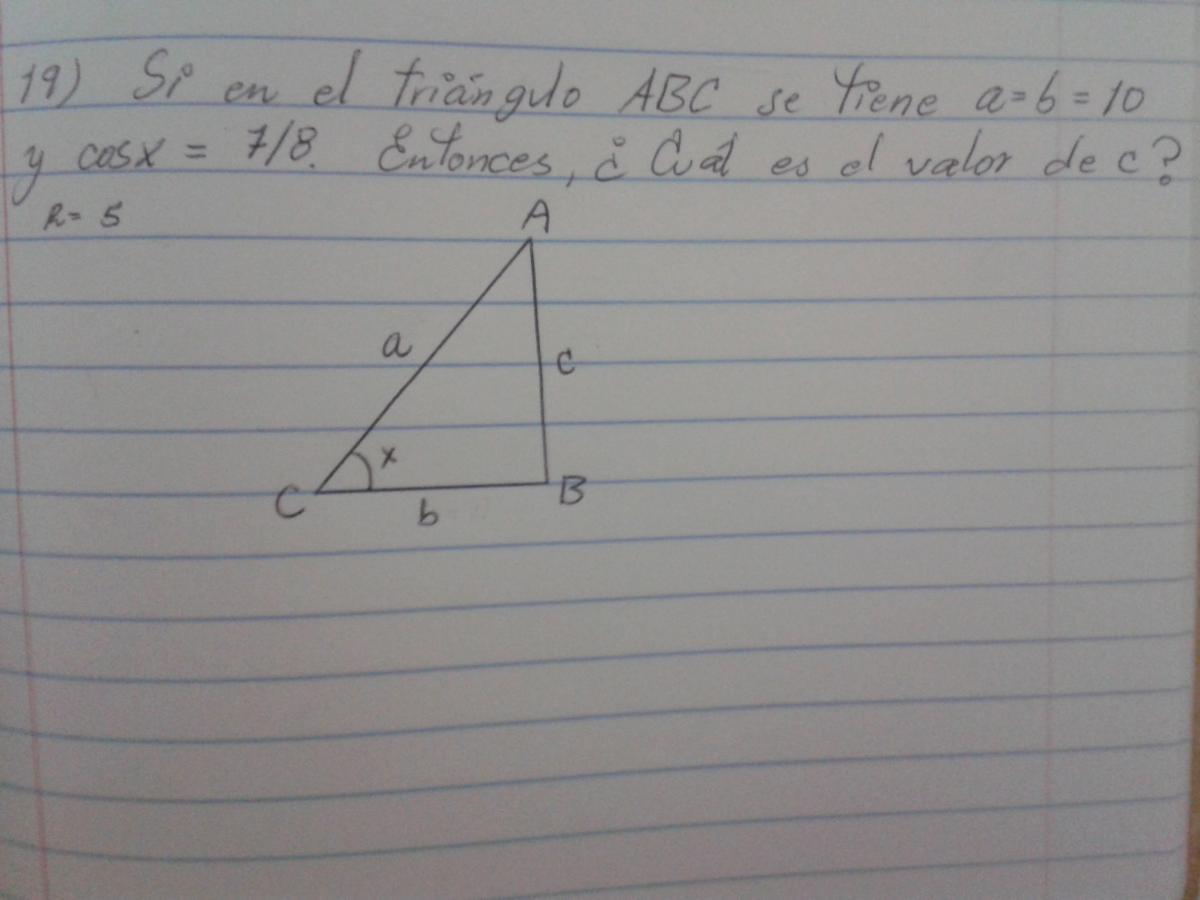 19) Si en el triángulo ABC se tiene a=b=10
y cosx = 7/8. Entonces, ¿Cuál es el valor de c?
R= 5
A
a
c
x
C
B
b